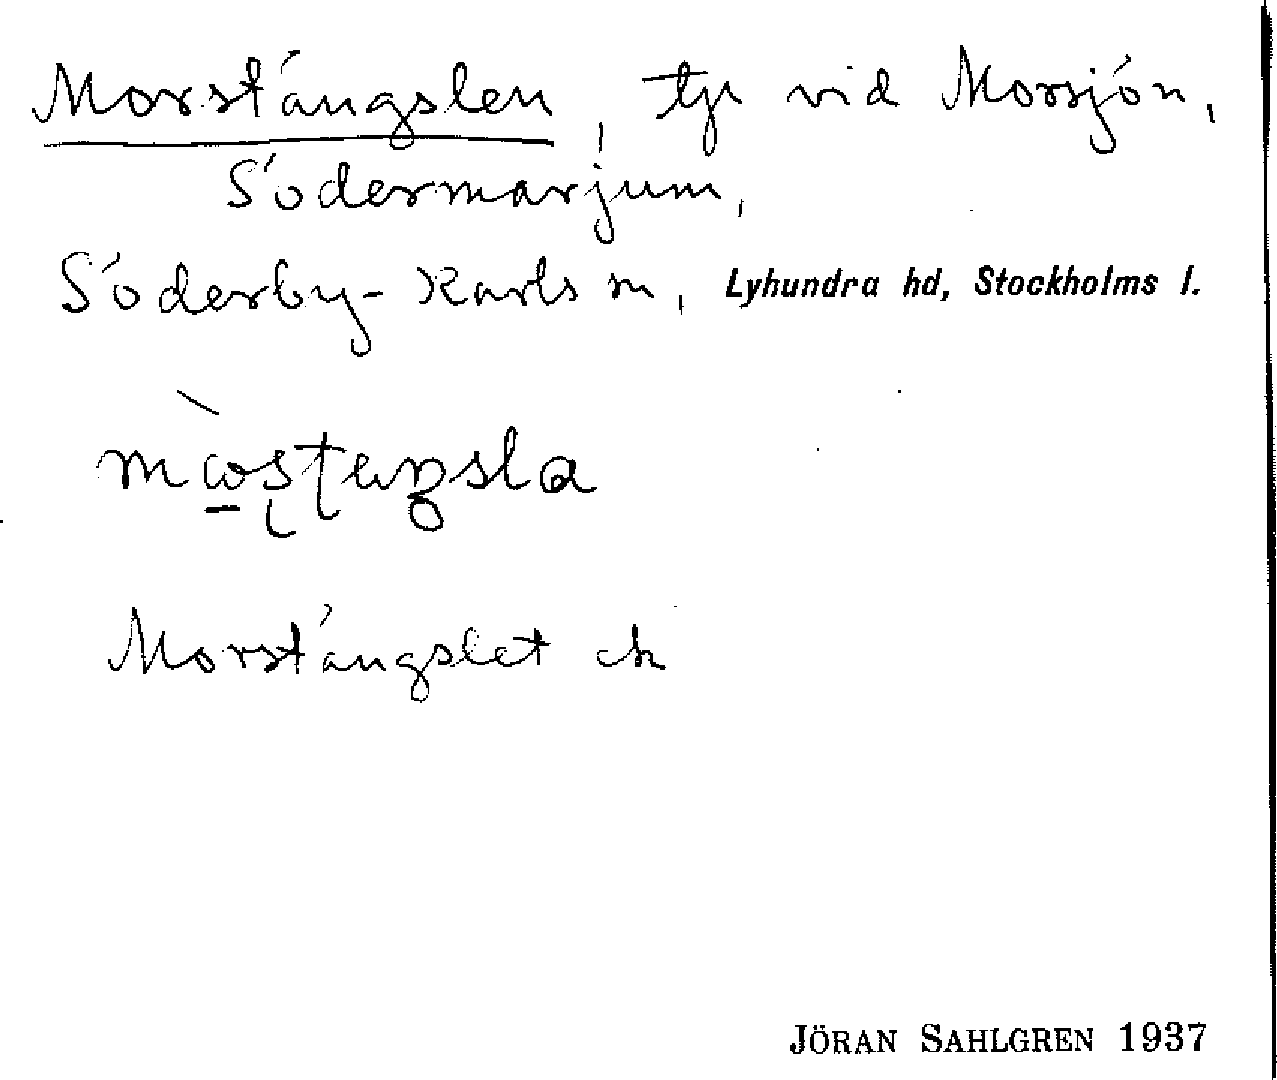 Morstängslen, tp vid Morsjön,
Södermarjum,
Söderby-Karls sn, Lyhundra hd, Stockholms l.
Morstängslet ek
JÖRAN SAHLGREN 1937